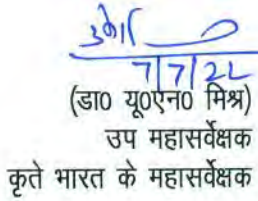 7/7/22
(डा0 यू0एन0 मिश्र)
उप महासर्वेक्षक
कृते भारत के महासर्वेक्षक